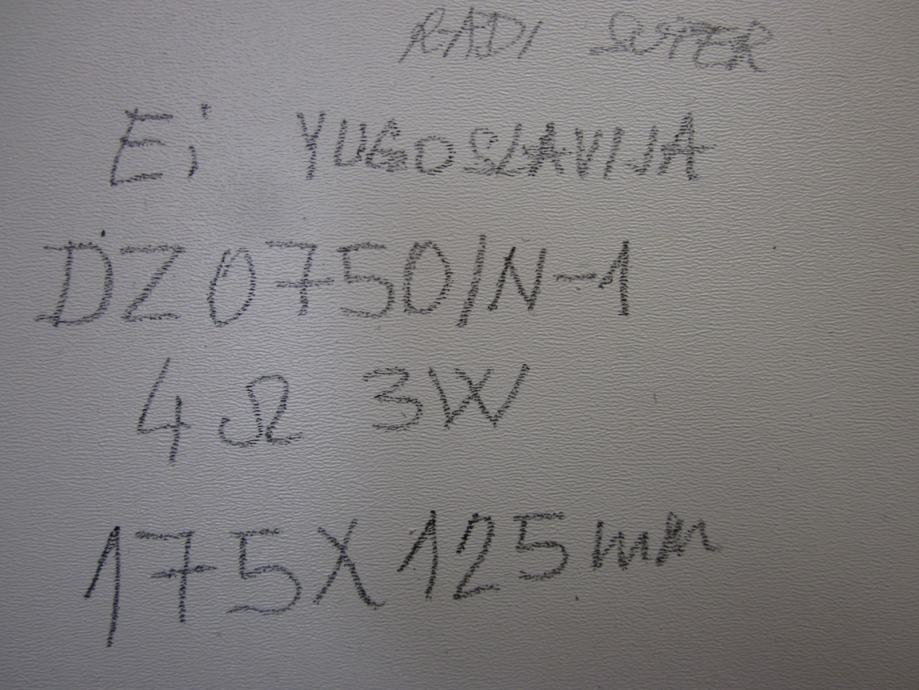 RADI SUPER
Ei YUGOSLAVIJA
DZ0750/N-1
4Ω 3W
175X125mm